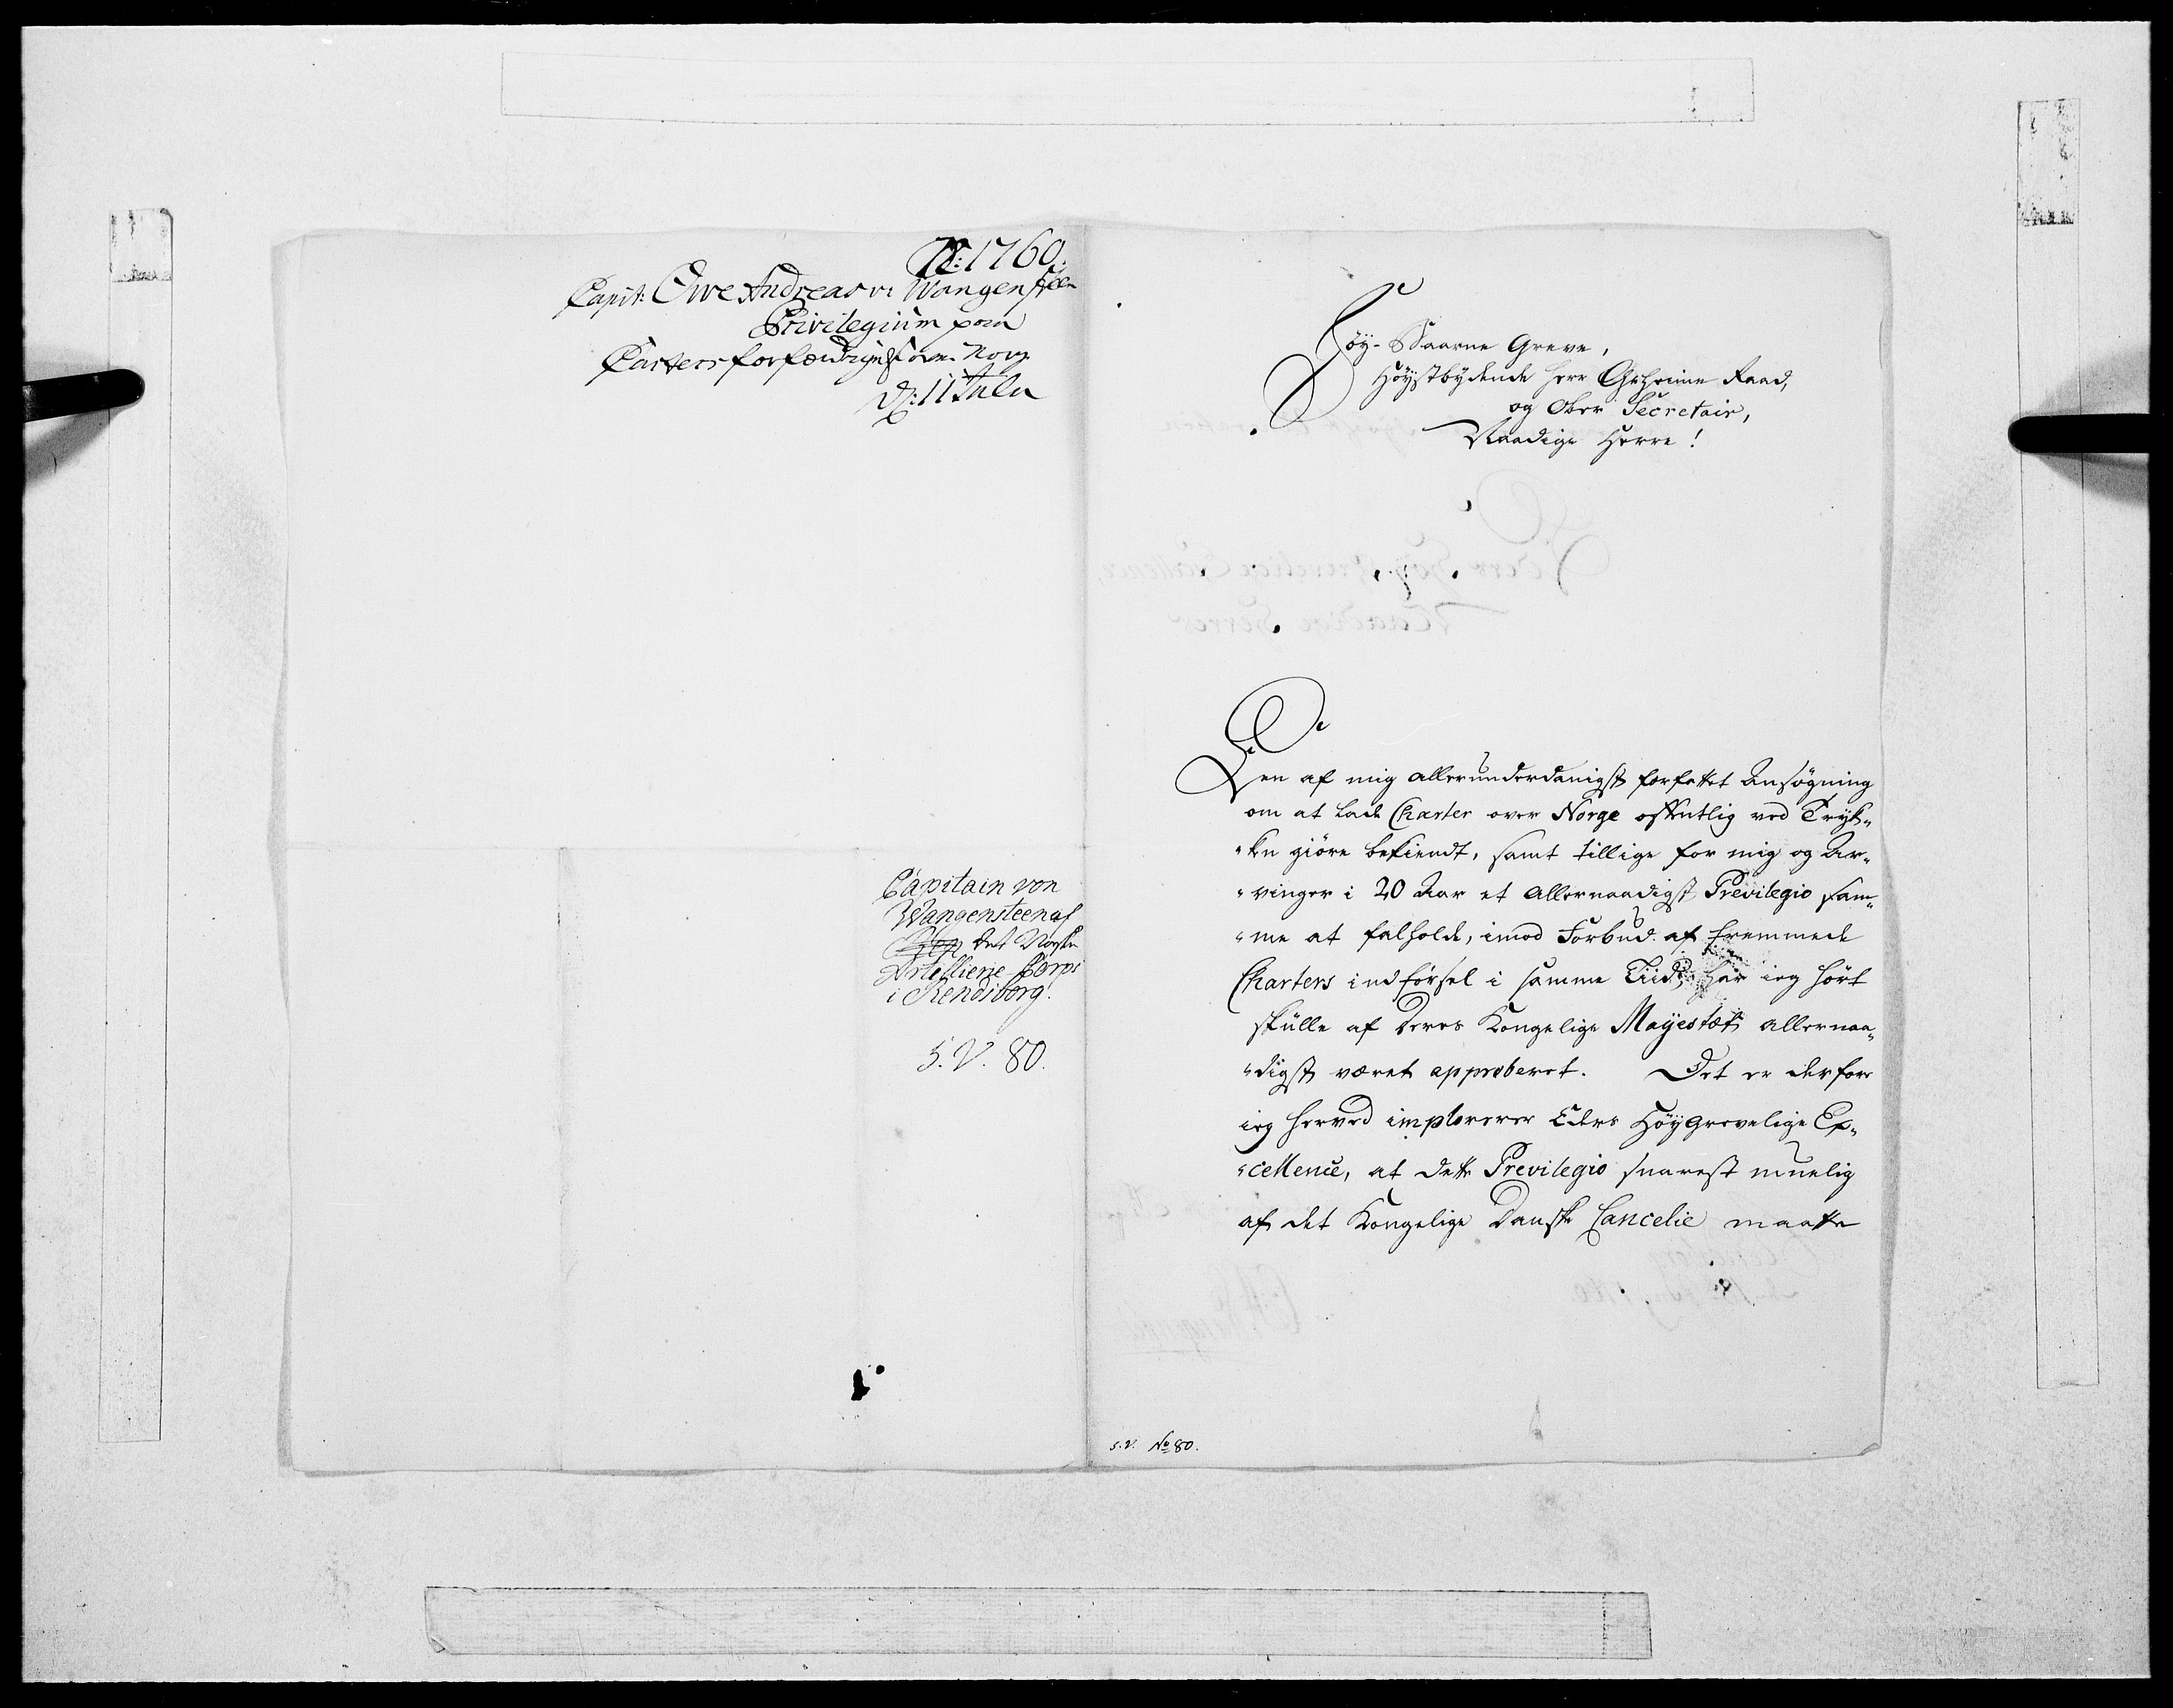 N: 1760.
Capit: Owe Andreas v: Wangensteen
Privilegium paa
Carters forfærdigelse over Norg
D: 11 Julii
Capitain von
Wangensteen af
det Norske
Artillerie-Corps
i Rendsborg.
S. V. 80.
Höy-Baarne Greve,
Höystbydende Herr Geheime Raad,
og Ober Secretair,
Naadige Herre!
Den af mig allerunderdanigst forfattet Ansøgning
om at lade Charter over Norge offentlig ved Tryk„
„ken giöre bekiendt, samt tillige for mig og Ar„
„vinger i 20 Aar et allernaadigst Previlegio sam„
„me at falholde, imod Forbud af fremmede
Charters indförsel i samme Tiid, har ieg hört
skulle af Deres Kongelige Mayestæt allernaa„
„digst været approberet. Det er derfore
ieg herved implorerer Eders Höygrevelige Ex„
„cellence, at dette Previlegio snarest muelig
af det Kongelige Danske Cancelie maatte
S. V. No 80.